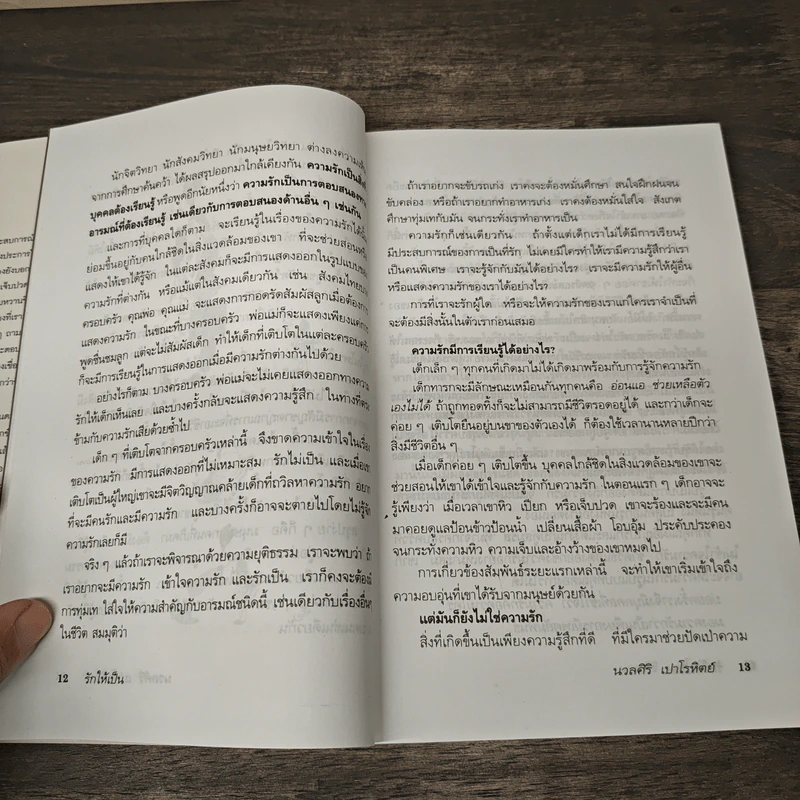 นักจิตวิทยา นักสังคมวิทยา นักมนุษยวิทยา ต่างลงความเห็น
จากการศึกษาค้นคว้า ได้ผลสรุปออกมาใกล้เคียงกัน ความรักเป็น
บุคคลต้องเรียนรู้ หรือพูดอีกนัยหนึ่งว่า ความรักเป็นการตอบสนอง
อารมณ์ที่ต้องเรียนรู้ เช่นเดียวกับการตอบสนองด้านอื่น ๆ เช่นกัน
และการที่บุคคลใดก็ตาม จะเรียนรู้ในเรื่องของความรักได้
ย่อมขึ้นอยู่กับคนใกล้ชิดในสิ่งแวดล้อมของเขา ที่จะช่วยสอน
แสดงให้เขาได้รู้จัก ในแต่ละสังคมก็จะมีการแสดงออกในรูปแบบของ
ความรักที่ต่างกัน หรือแม้แต่ในสังคมเดียวกัน เช่น สังคมไทย
ครอบครัว คุณพ่อ คุณแม่ จะแสดงการกอดรัดสัมผัสลูกเมื่อต้องการ
แสดงความรัก ในขณะที่บางครอบครัว พ่อแม่ก็จะแสดงเพียงแค่
พูดชื่นชมลูก แต่จะไม่สัมผัสเด็ก ทำให้เด็กที่เติบโตในแต่ละครอบครัว
ก็จะมีการเรียนรู้ในการแสดงออกเมื่อมีความรักต่างกันไปด้วย
อย่างไรก็ตาม บางครอบครัว พ่อแม่จะไม่เคยแสดงออกทางความ
รักให้เด็กเห็นเลย และบางครั้งกลับจะแสดงความรู้สึก ในทางที่ตรง
ข้ามกับความรักเสียด้วยซ้ำไป
เด็ก ๆ ที่เติบโตจากครอบครัวเหล่านี้ จึงขาดความเข้าใจในเรื่อง
ของความรัก มีการแสดงออกที่ไม่เหมาะสม รักไม่เป็น และเมื่อเขา
เติบโตเป็นผู้ใหญ่เขาจะมีจิตวิญญาณคล้ายเด็กที่ถวิลหาความรัก อยาก
ที่จะมีคนรักและมีความรัก และบางครั้งก็อาจจะตายไปโดยไม่รู้จัก
ความรักเลยก็มี
จริง ๆ แล้วถ้าเราจะพิจารณาด้วยความยุติธรรม เราจะพบว่า ถ้า
เราอยากจะมีความรัก เข้าใจความรัก และรักเป็น เราก็คงจะต้องมี
การทุ่มเท ใส่ใจให้ความสำคัญกับอารมณ์ชนิดนี้ เช่นเดียวกับเรื่องอื่นๆ
ในชีวิต สมมุติว่า
12 รักให้เป็น
ถ้าเราอยากจะขับรถเก่ง เราคงจะต้องหมั่นศึกษา สนใจฝึกฝนจน
ขับคล่อง หรือถ้าเราอยากทำอาหารเก่ง เราคงต้องหมั่นใส่ใจ สังเกต
ศึกษาทุ่มเทกับมัน จนกระทั่งเราทำอาหารเป็น
ความรักก็เช่นเดียวกัน ถ้าตั้งแต่เด็กเราไม่ได้มีการเรียนรู้
มีประสบการณ์ของการเป็นที่รัก ไม่เคยมีใครทำให้เรามีความรู้สึกว่าเรา
เป็นคนพิเศษ เราจะรู้จักกับมันได้อย่างไร? เราจะมีความรักให้ผู้อื่น
หรือแสดงความรักของเราได้อย่างไร?
การที่เราจะรักผู้ใด หรือจะให้ความรักของเราแก่ใครเราจำเป็นที่
จะต้องมีสิ่งนั้นในตัวเราก่อนเสมอ
ความรักมีการเรียนรู้ได้อย่างไร?
เด็กเล็ก ๆ ทุกคนที่เกิดมาไม่ได้เกิดมาพร้อมกับการรู้จักความรัก
เด็กทารกจะมีลักษณะเหมือนกันทุกคนคือ อ่อนแอ ช่วยเหลือตัว
เองไม่ได้ ถ้าถูกทอดทิ้งก็จะไม่สามารถมีชีวิตรอดอยู่ได้ และกว่าเด็กจะ
ค่อย ๆ เติบโตยืนอยู่บนขาของตัวเองได้ ก็ต้องใช้เวลานานหลายปีกว่า
สิ่งมีชีวิตอื่น ๆ
เมื่อเด็กค่อย ๆ เติบโตขึ้น บุคคลใกล้ชิดในสิ่งแวดล้อมของเขาจะ
ช่วยสอนให้เขาได้เข้าใจและรู้จักกับความรัก ในตอนแรก ๆ เด็กอาจจะ
รู้เพียงว่า เมื่อเวลาเขาหิว เปียก หรือเจ็บปวด เขาจะร้องและจะมีคน
มาคอยดูแลป้อนข้าวป้อนน้ำ เปลี่ยนเสื้อผ้า โอบอุ้ม ประคับประคอง
จนกระทั่งความหิว ความเจ็บและอ้างว้างของเขาหมดไป
การเกี่ยวข้องสัมพันธ์ระยะแรกเหล่านี้ จะทำให้เขาเริ่มเข้าใจถึง
ความอบอุ่นที่เขาได้รับจากมนุษย์ด้วยกัน
แต่มันก็ยังไม่ใช่ความรัก
สิ่งที่เกิดขึ้นเป็นเพียงความรู้สึกที่ดี ที่มีใครมาช่วยปัดเป่าความ
นวลศิริ เปาโรหิตย์ 13